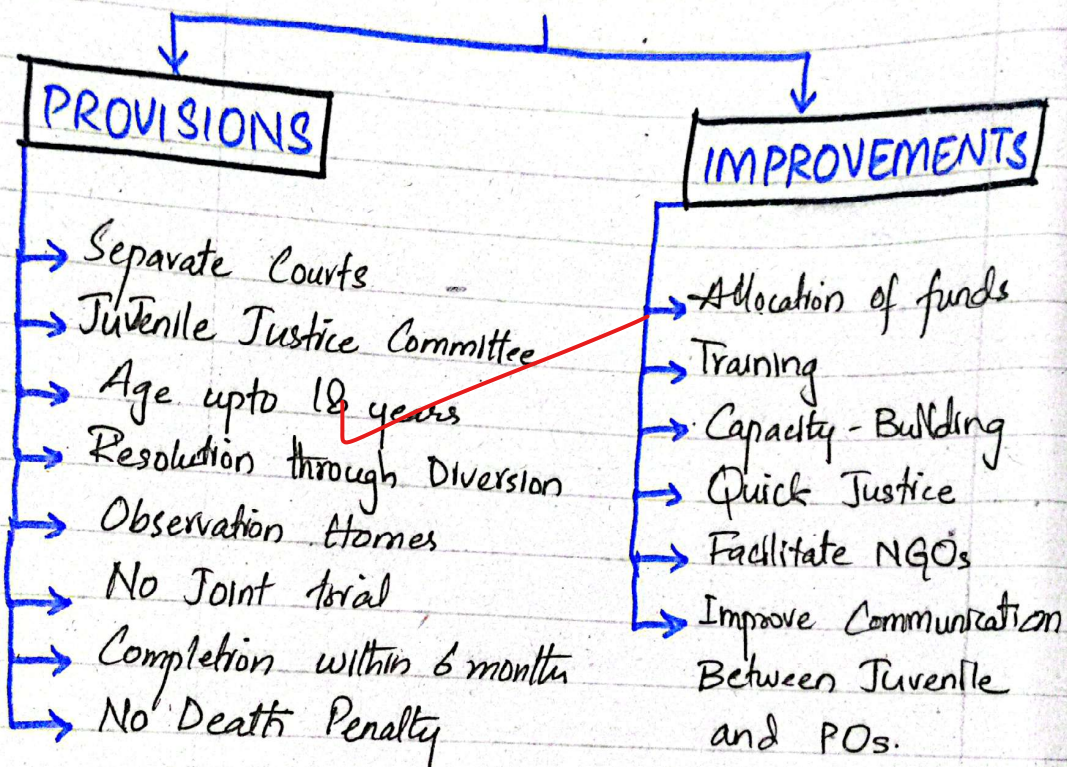 PROVISIONS
Separate Courts
Juvenile Justice Committee
Age upto 18 years
Resolution through Diversion
Observation Homes
No Joint trial
Completion within 6 month
No Death Penalty
IMPROVEMENTS
Allocation of funds
Training
Capacity - Building
Quick Justice
Facilitate NGOs
Improve Communication
Between Juvenile
and POs.